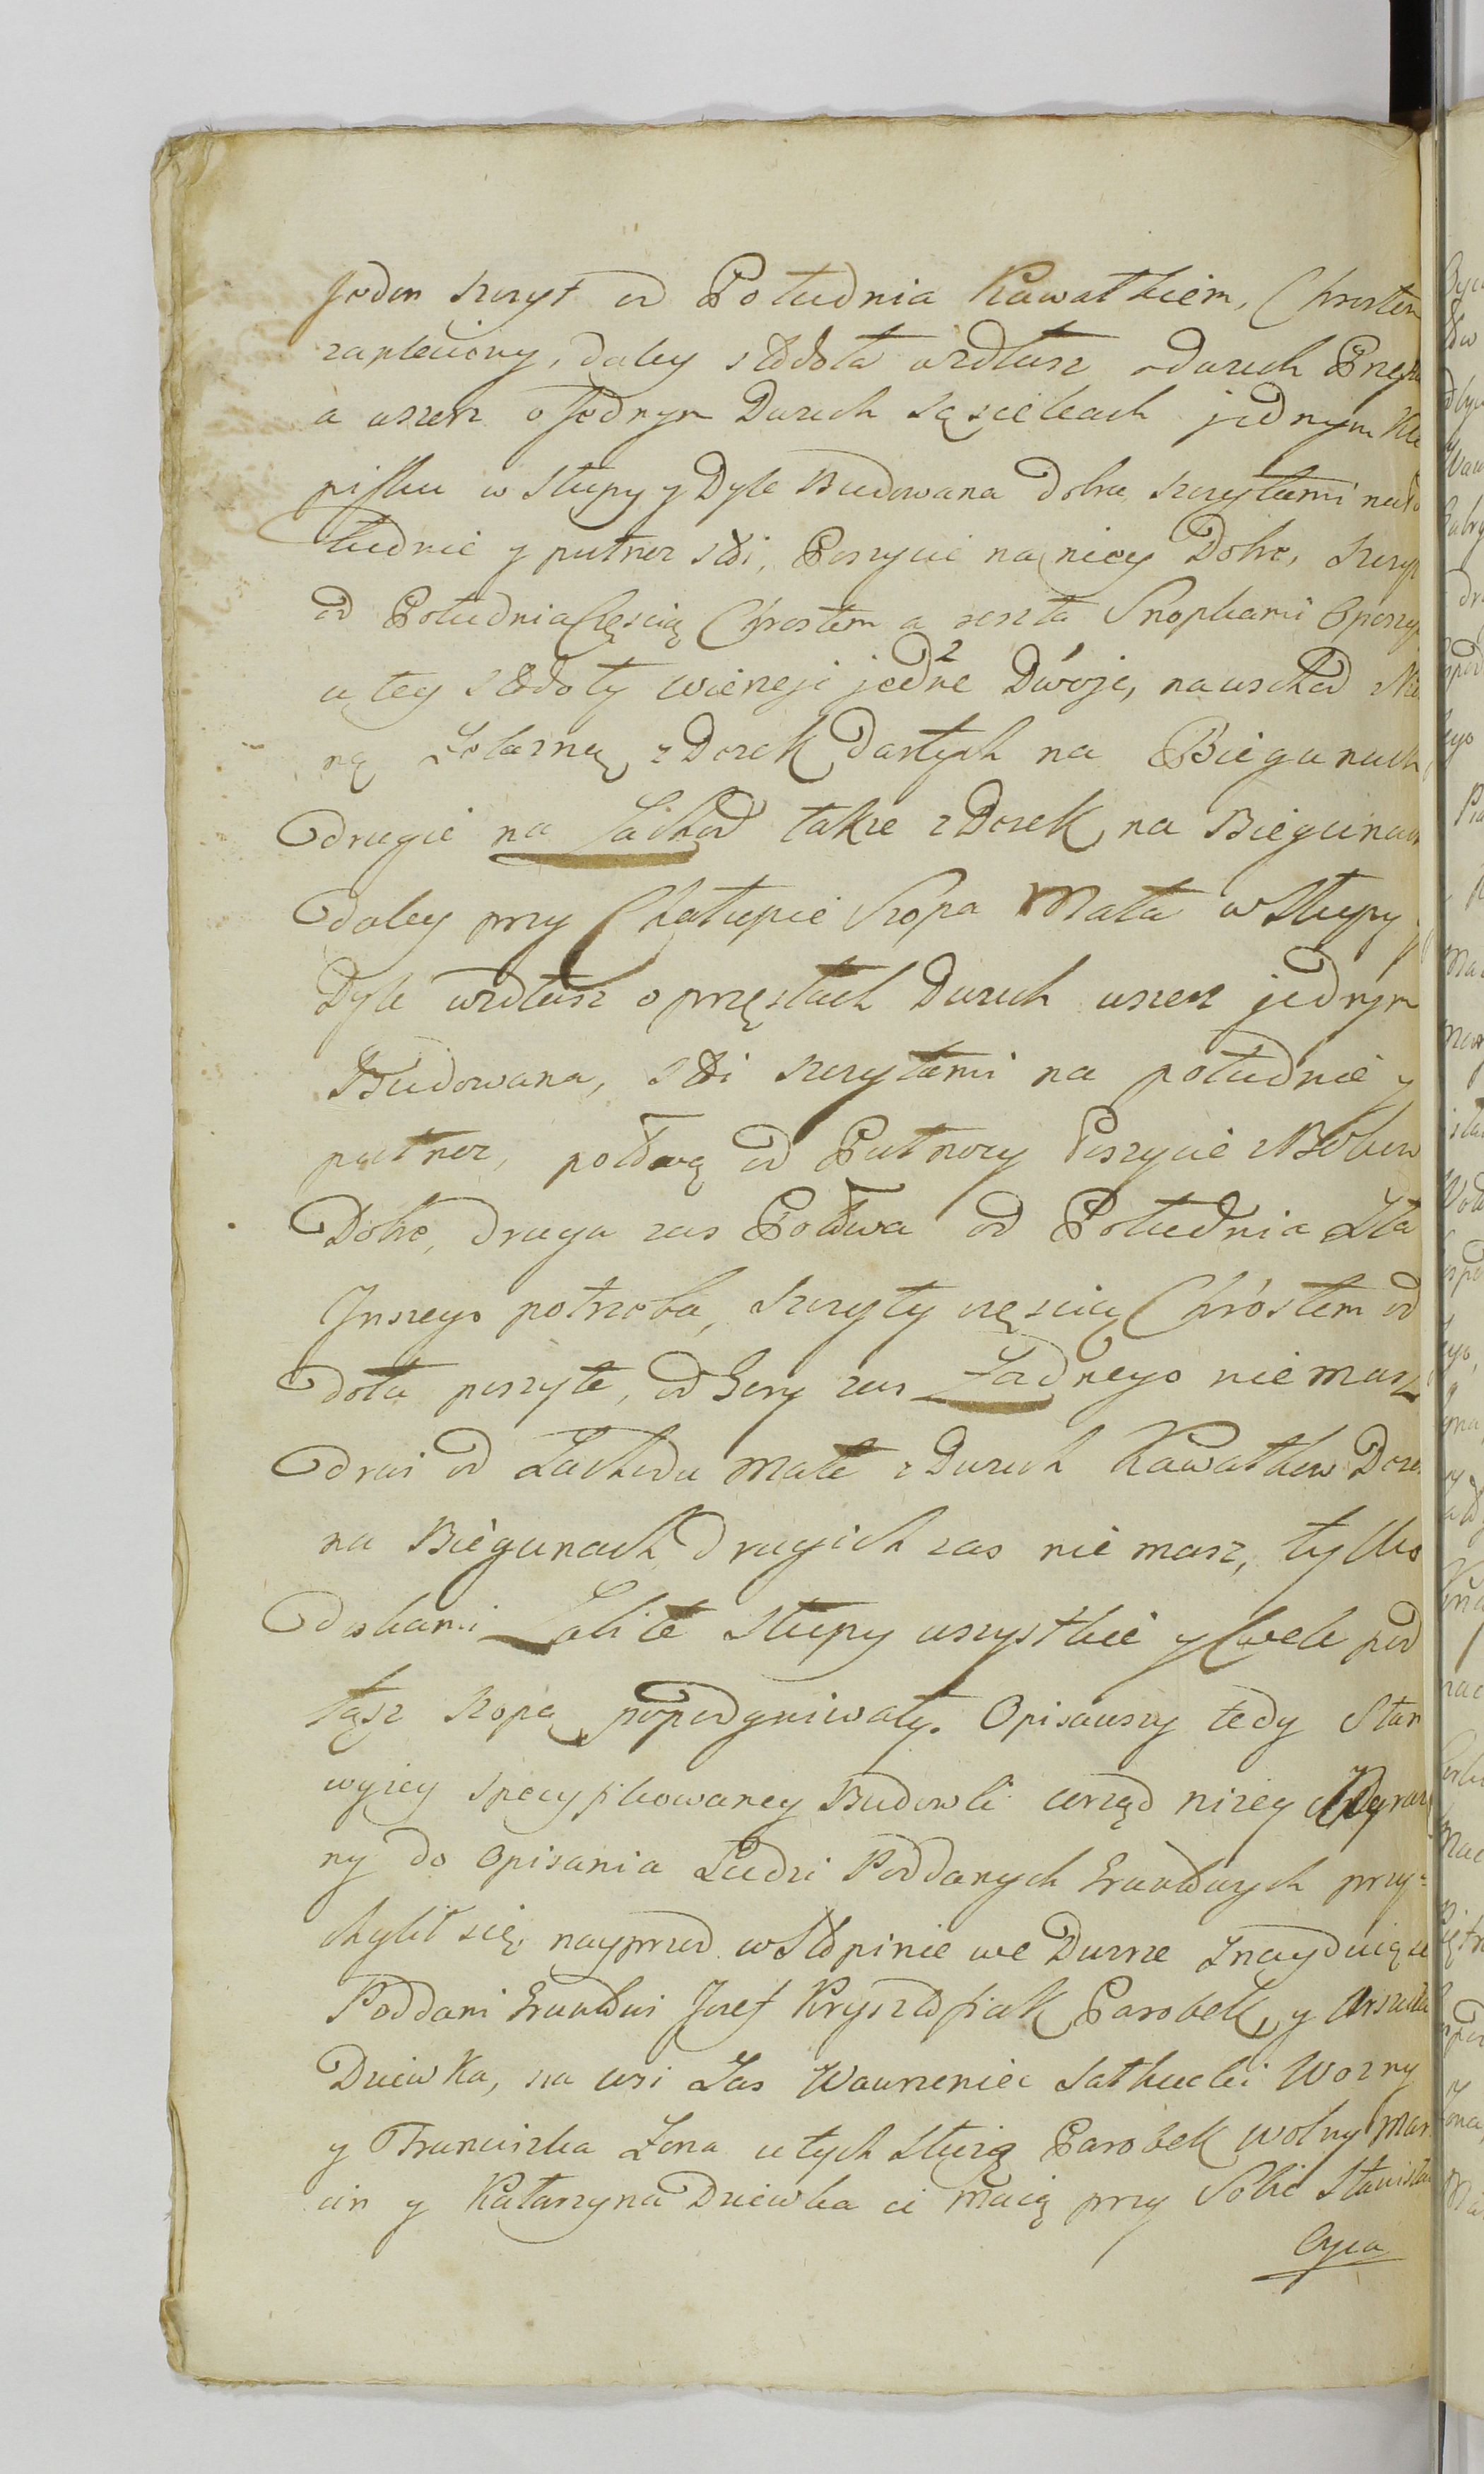 Jeden szczyt od Południa Kawałkiem, Chrostem
zapleciony, daley stodoła wzdłusz o dwuch Przę
a wszerz o Jednym Dwuch sąsiekach jednym Kle
pisku w słupy y Dyle Budowana dobra, szczytami na Po
łudnie y putnoc stoi, Poszycie na niey Dobre, szczyt
od Południa Częscią Chrostem a reszta Snopkami Oposzy
u tey stodoły wierzeje jedne 2 Dwoje, na wschod
ną Zelazną z Dosek Dartych na Biegunach,
drugie na Zachod takze z Dosek, na Biegunach
daley przy Chałupie Szopa Mała w Słupy y
Dyle wzdłusz o przęsłach Dwuch wszerz jednym
Budowana, stoi szczytami na południe y
putnoc, połową od Putnocy Poszycie
Dobre, druga zas Połowa od Południa Zła
Inszego potrzeba, szczyty częscią Chróstem od
dołu poszyte, od Gory zas Zadnego nie masz
drzwi od Zachodu małe z Dwuch Kawałkow Dosek
na Biegunach, drugich zas nie masz, tylko
doskami Zabite Słupy wszystkie y Cwele pod
tąsz szopą popodgniwały. Opisawszy tedy Stan
wyzey specyfikowaney Budowli urząd nizey
ny do opisania Ludzi Poddanych Gruntowych przy-
chylił się, nayprzod w Stopinie we Dworze Znayduiące
Poddani Gruntowi Jozef Krysztofiak Parobek, y Urszula
Dziewka, na wsi Zas Wawrzeniec Wozny
y Franciszka Zona u tych Słuzą Parobek wolny Mar
cin y Katarzyna Dziewka ci maią przy Sobie Stanisła
Oyca